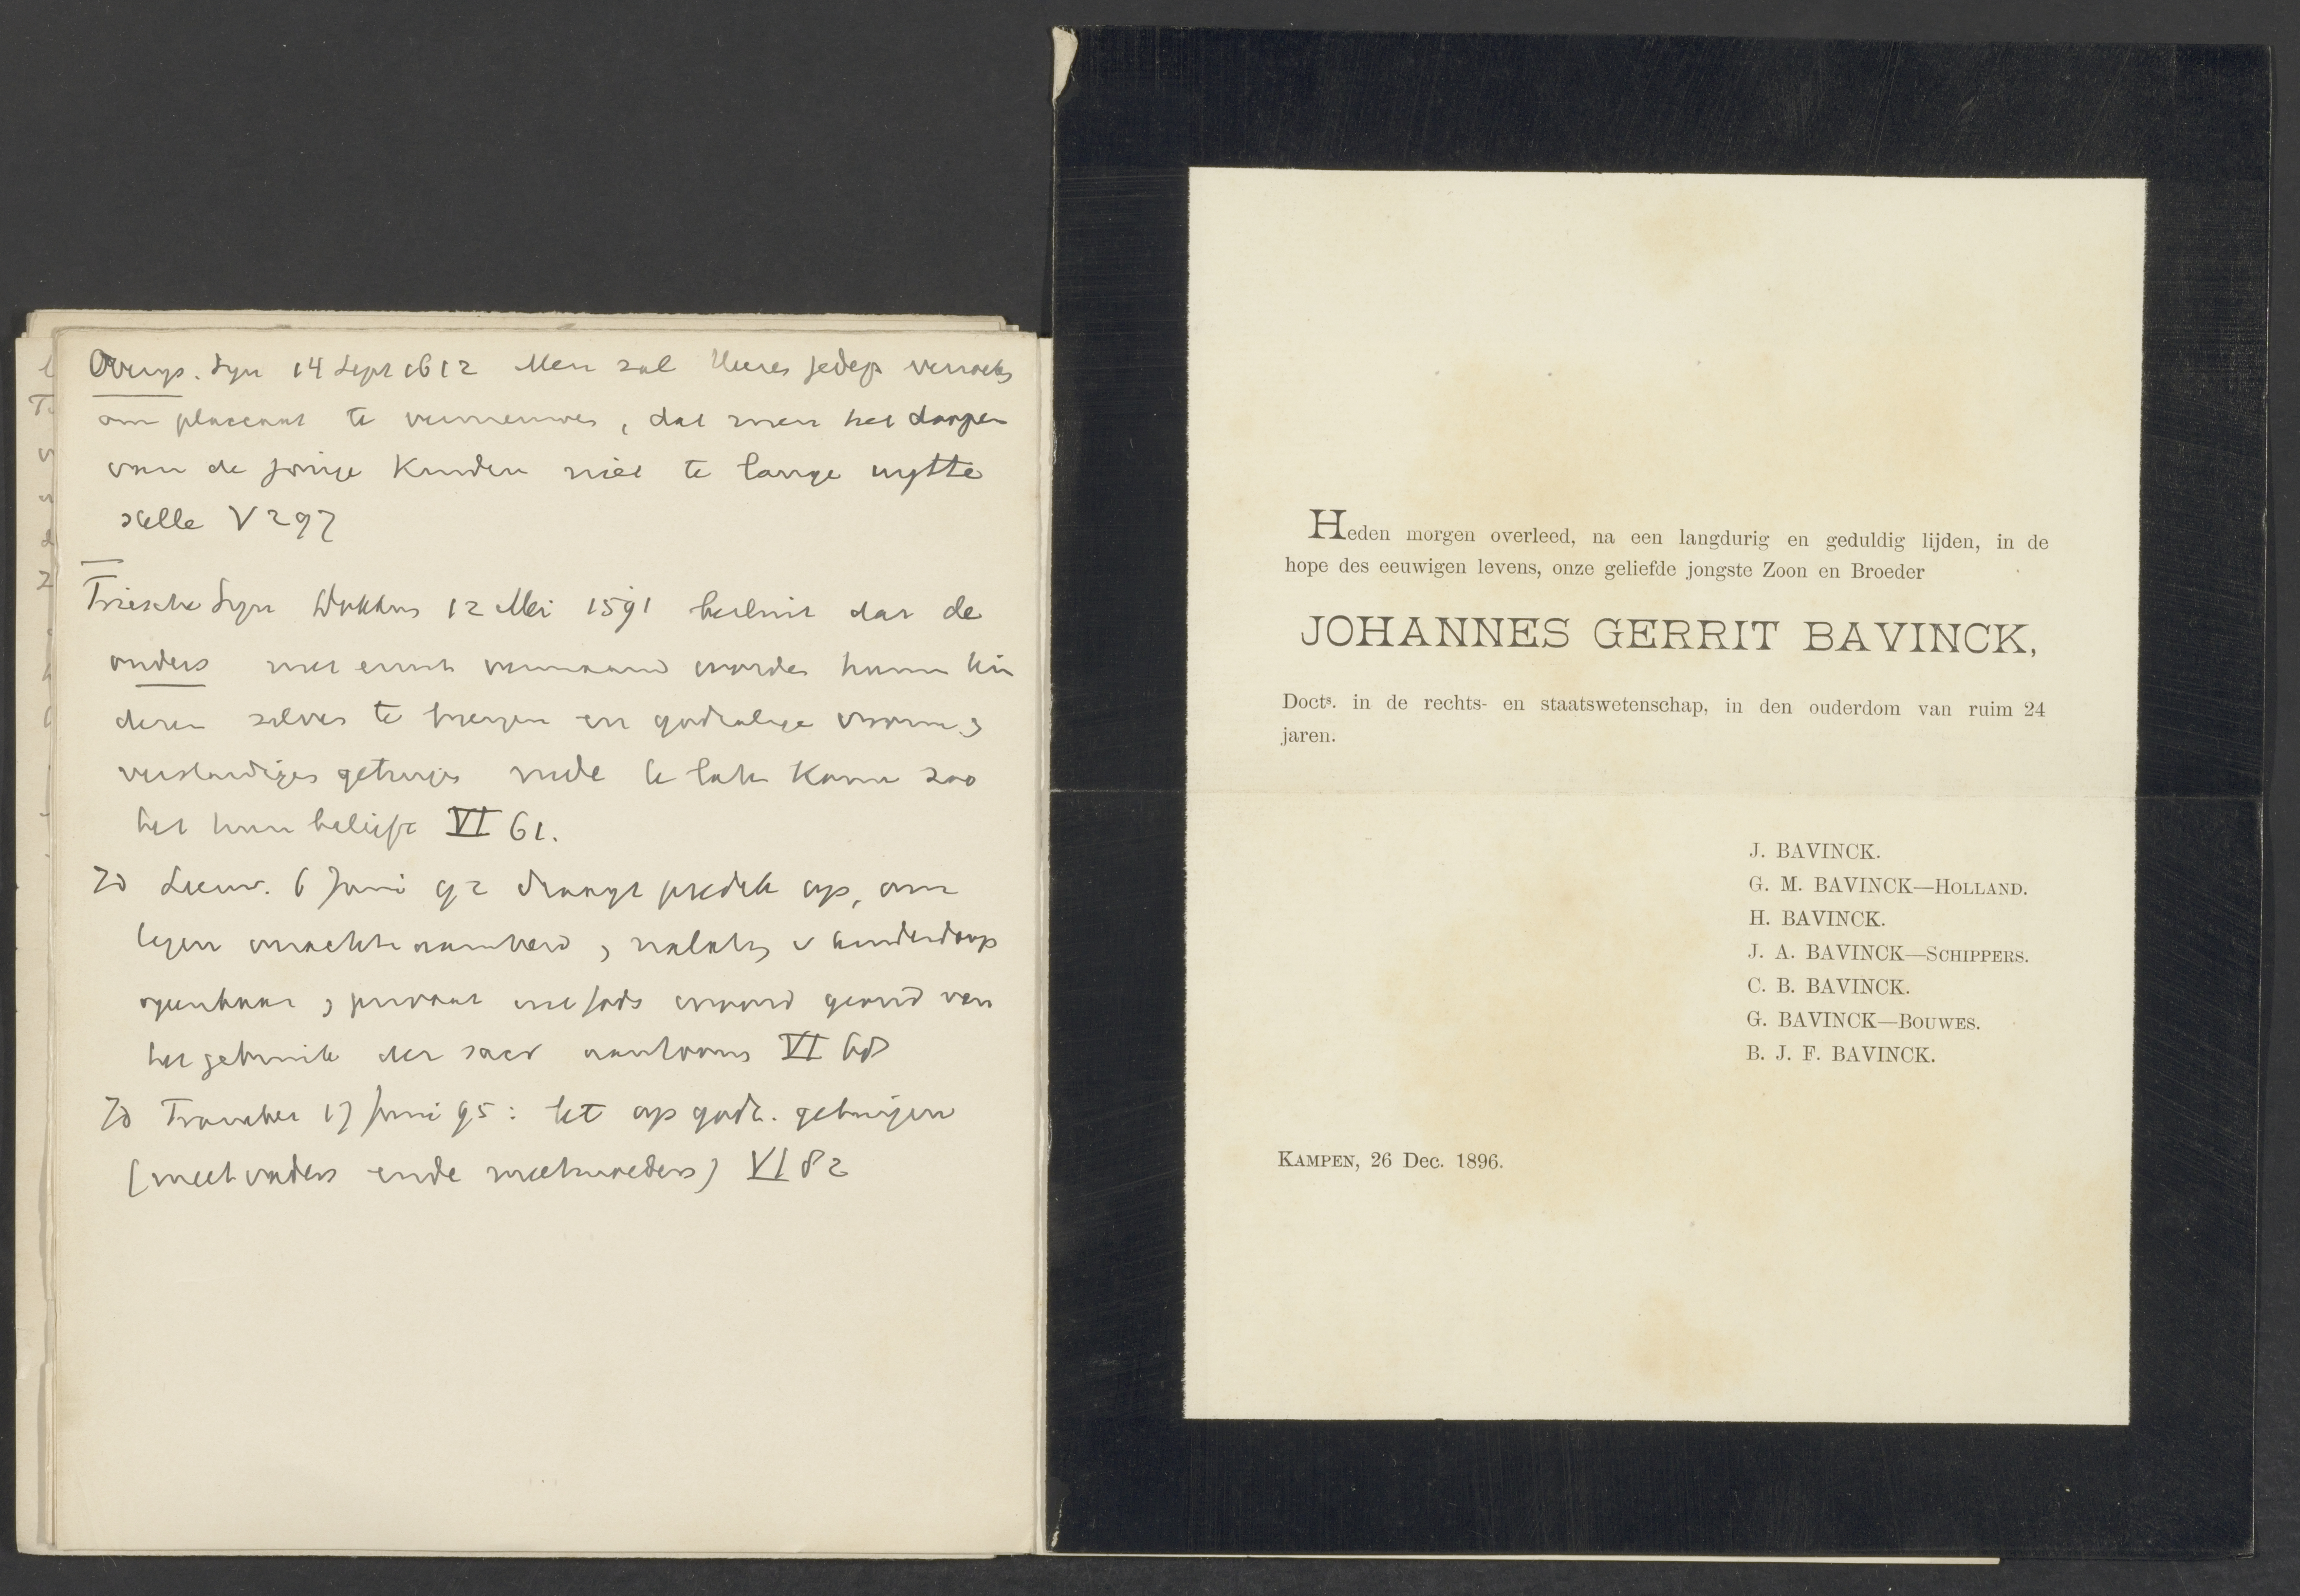 Overijs. Syn 14 Sept 1612 Men zal Heeren gedep verzoeken
om placcaat te vernieuwen, dat men het doopen
van de jonge Kinderen niet te lange uytte
stelle V 297
Friesche Syn Dokkum 12 Mei 1591 besluit dat de
ouders met ernst vermaand worden hunne kin
deren selves te brengen en godzalige vrome &
verstandiges getuijgen mede te laten Komen zoo
het hun belieft VI 61.
Id Leeuw. 6 Juni 92 draagt predik op, om
tegen &
openbaar & privaat uit Gods woord grond van
het gebruik der sacr aantoonen VI 68
Id Franeker 17 Juni 95: let op godz. getuijgen
(meet vaders ende meetmoeders) VI 82
Heden morgen overleed, na een langdurig en geduldig lijden, in de
hope des eeuwigen levens, onze geliefde jongste Zoon en Broeder
JOHANNES GERRIT BAVINCK,
Docts. in de rechts- en staatswetenschap, in den ouderdom van ruim 24
jaren.
J. BAVINCK.
G. M. BAVINCK—HOLLAND.
H. BAVINCK.
J. A. BAVINCK—SCHIPPERS.
C. B. BAVINCK.
G. BAVINCK—BOUWES.
B. J. F. BAVINCK.
KAMPEN, 26 Dec. 1896.